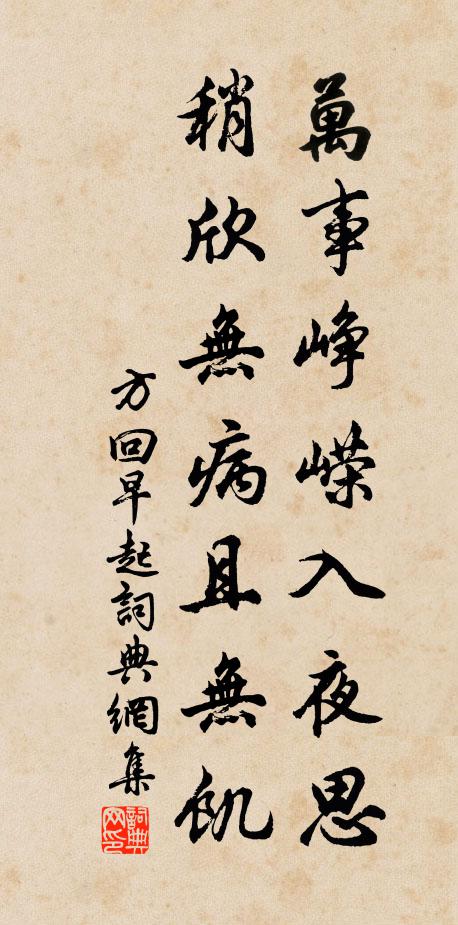 萬事峥嶸入夜思
稍欣無病且無飢
方回早起詞典網集
詞典网印